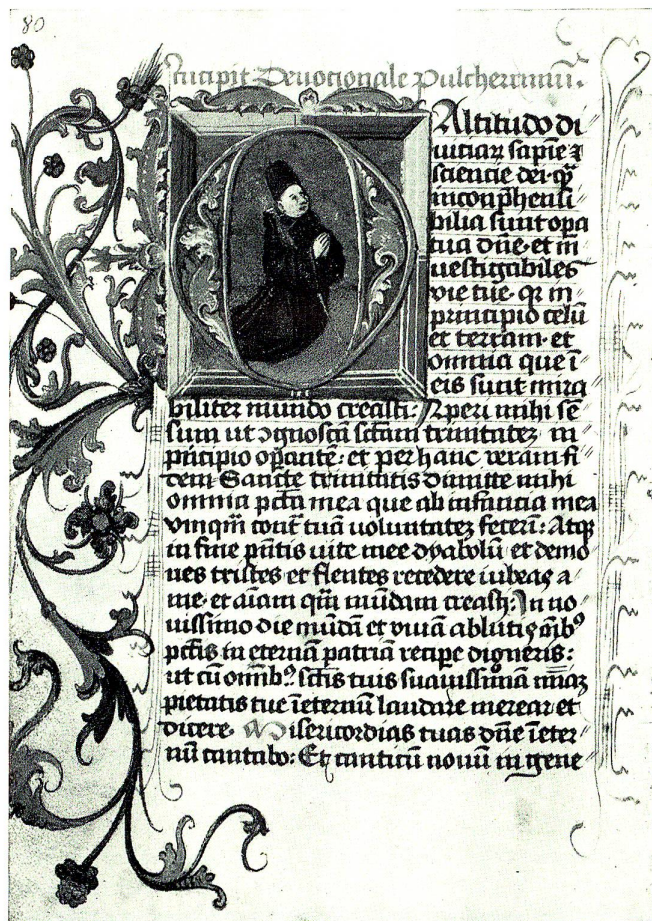 80
Incipit Deuotionale Pulcherrimum.
Altitudo di
uitiaꝝ sapīe ⁊
scientie dei· qᷓ
inconp̄hensi
bilia sunt opa
tua dn̄e· et in
uestigabiles
vie tue· qꝛ in
principio celū
et terram· et
omnia que ī
eis sunt mira
biliter mundo creasti: Aperi mihi sē
sum ut ꝯgnoscā sctam̄ trinitateꝫ in
pͥncipio opantē: et per hanc veram fi
dem Sancte trinitatis dimitte mihi
omnia pctā mea que ab infancia mea
vnqᷓm cont̄ tuā uoluntateꝫ fecerī: Atqꝫ
in fine pn̄tis uite mee dyabolū et demo
nes tristes et flentes recedere iubeas a
me· et aīam qᷓm mūdam creasti: In no
uissimo die mūdā et viuā ablutis om̄ibꝰ
pctīs in eternā patriā recipe digneris:
ut cū omībꝰ sctīs tuis suauissimam
pietatis tue īeternū laudare merear et
dicere· Misericordias tuas dn̄e īeter
nū cantabo: Et canticū nouū in gene